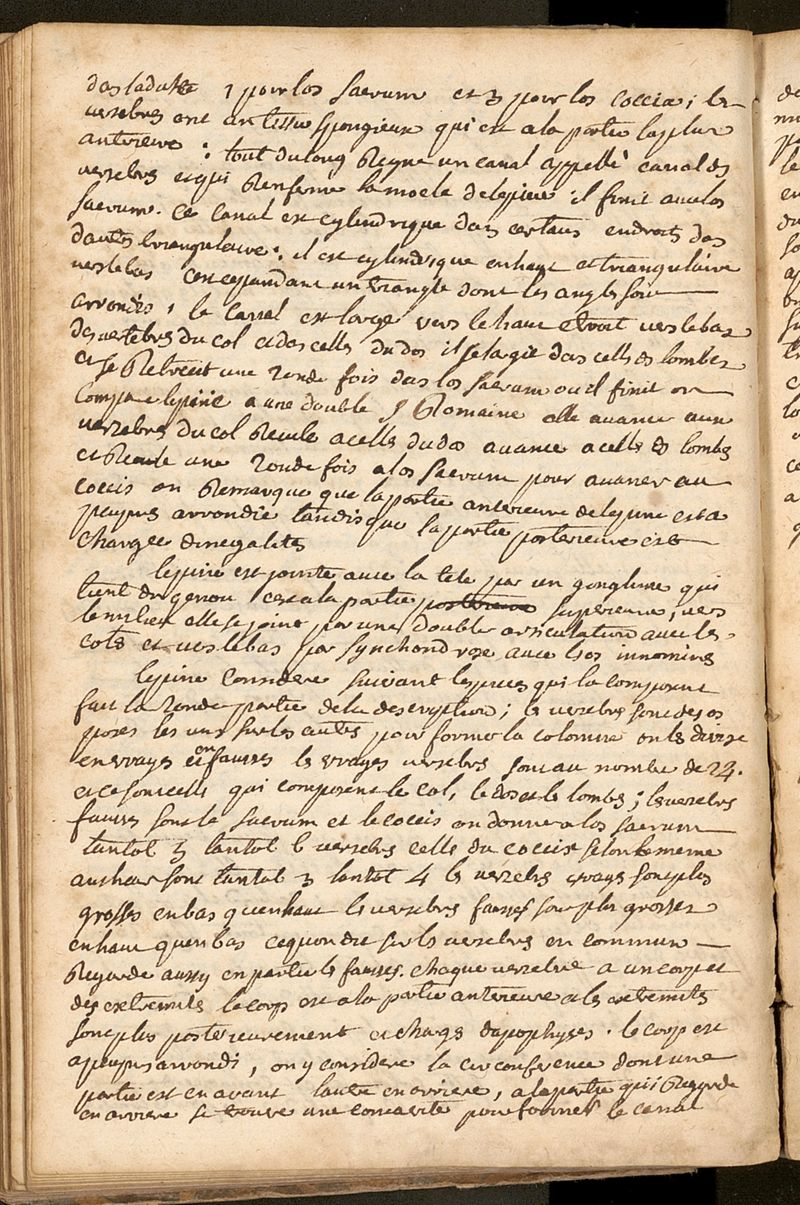 1 pour los sacrum et 3 pour los coccix; les
vertebres ont un tissu spongieux qui est a la partie la plus
anterieure : tout du long Regne un canal appellé canal des
vertebres et qui Renferme la moele de lepine il finit avec los
sacrum. ce canal est cylindrique dans certains endroits dans
dautres triangulaire; il est cylindrique en haut et triangulaire
vers le bas cest cependant un triangle dont les angles sont
arrondis, le canal est large vers le haut Etroit vers le bas
des vertebres du col et des celles du dos il selargie dans celles des lombes
et se Retrecit une 2onde fois dans los sacrum ou il finit on
compare lepine a une double S Romaine elle avance aux
vertebres du col Recule a celles du dos avance a celles des lombes
et Recule une 2onde fois a los sacrum pour avancer au
coccis on Remarque que la partie anterieure de lepine est a
peupres arrondie tandis que la partie posterieure est
chargee dinegalites
lepine est jointe avec la tete par un ginglime qui
tient du genou cest a la partie posterieure superieure, vers
le milieu elle se joint par une double articulation avec les
cotes et vers le bas par synchondrose avec les os innominés
lepine considere suivant les pieces qui la composent
fait la 2onde partie de la description; les vertebres sont des os
posés les uns sur les autres pour former la colomne on les divise
en vrayes et en fausses les vrayes vertebres sont au nombre de 24.
et ce sont celles qui composent le col, le dos et les lombes; les vertebres
fausses sont le sacrum et le coccis on donne a los sacrum
tantot 5 tantot 6 vertebres celles du coccix selon le meme
autheur sont tantot 3 tantot 4 les vertebres vrayes sont plus
grosses en bas quen haut les vertebres fausses sont plus grosses
en haut quen bas ce quon dit sur les vertebres en commun
Regarde aussy en partie les fausses. chaque vertebre a un corp et
des extremités le corp est a la partie anterieure et les extremités
sont plus posterieurement et chargés dapophyses. le corp est
a peu pres arrondi, on y considere la circonference dont une
partie est en avant lautre en arriere, a la partie qui Regarde
en arriere se trouve une concavité pour former le canal